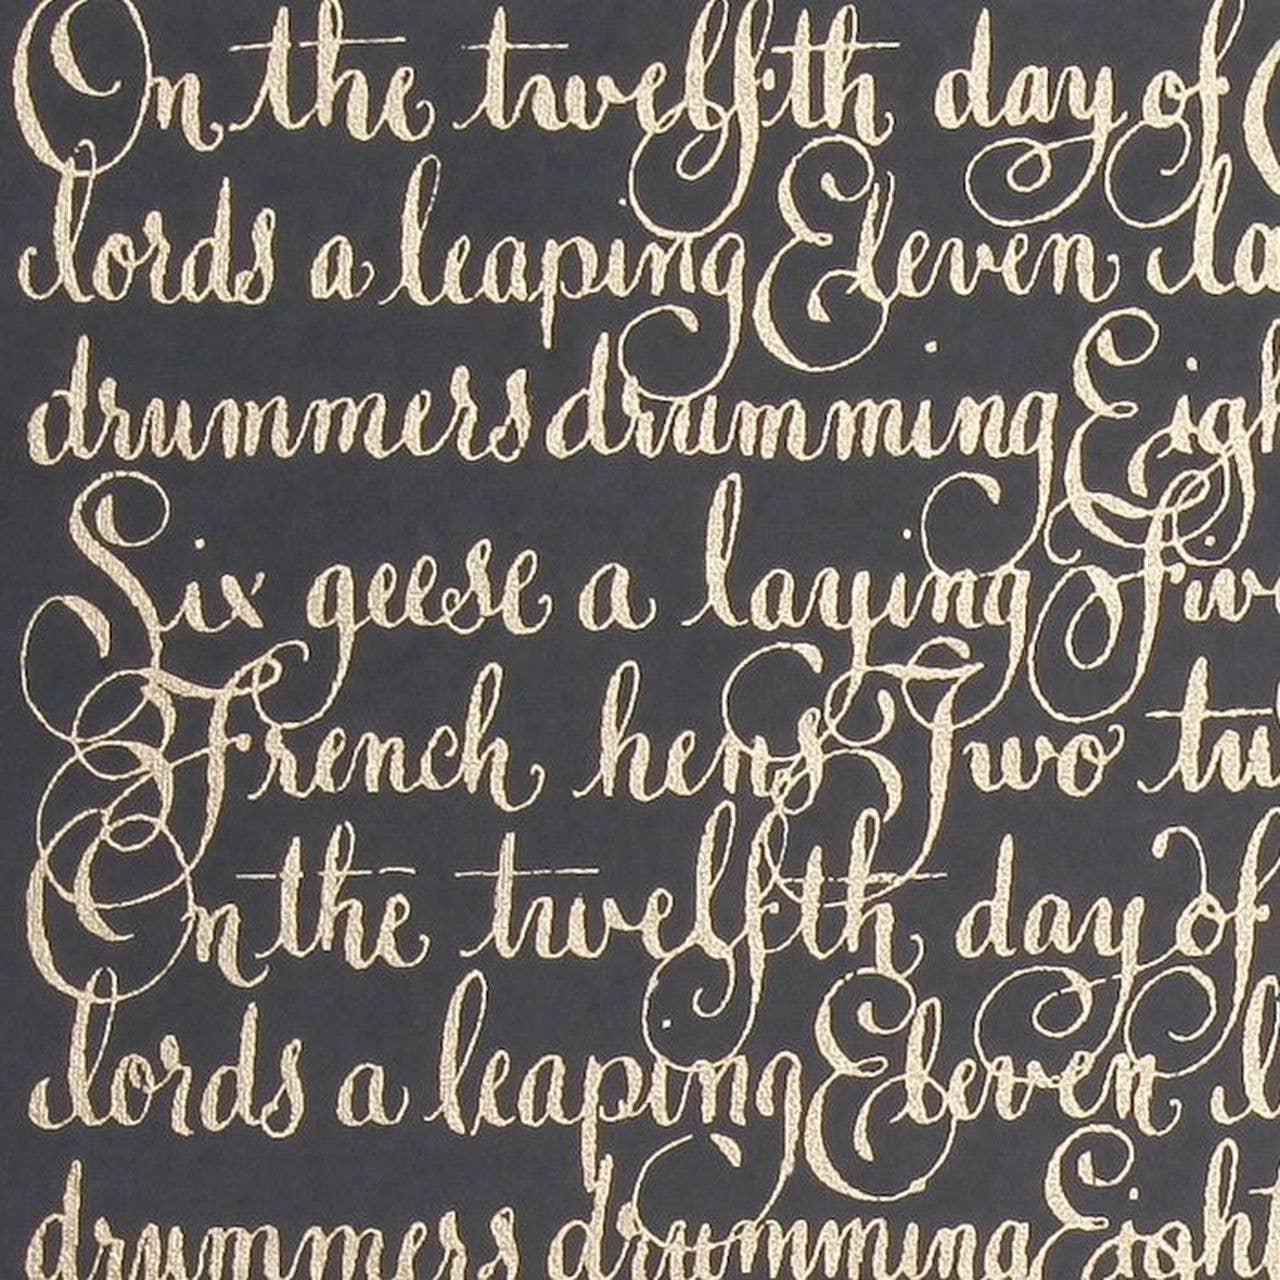 On the twelfth day of
lords a leaping Eleven la
drummers drumming Eigh
Six geese a laying Five
French hens Two tu
On the twelfth day of
lords a leaping Eleven l
drummers drumming Eight